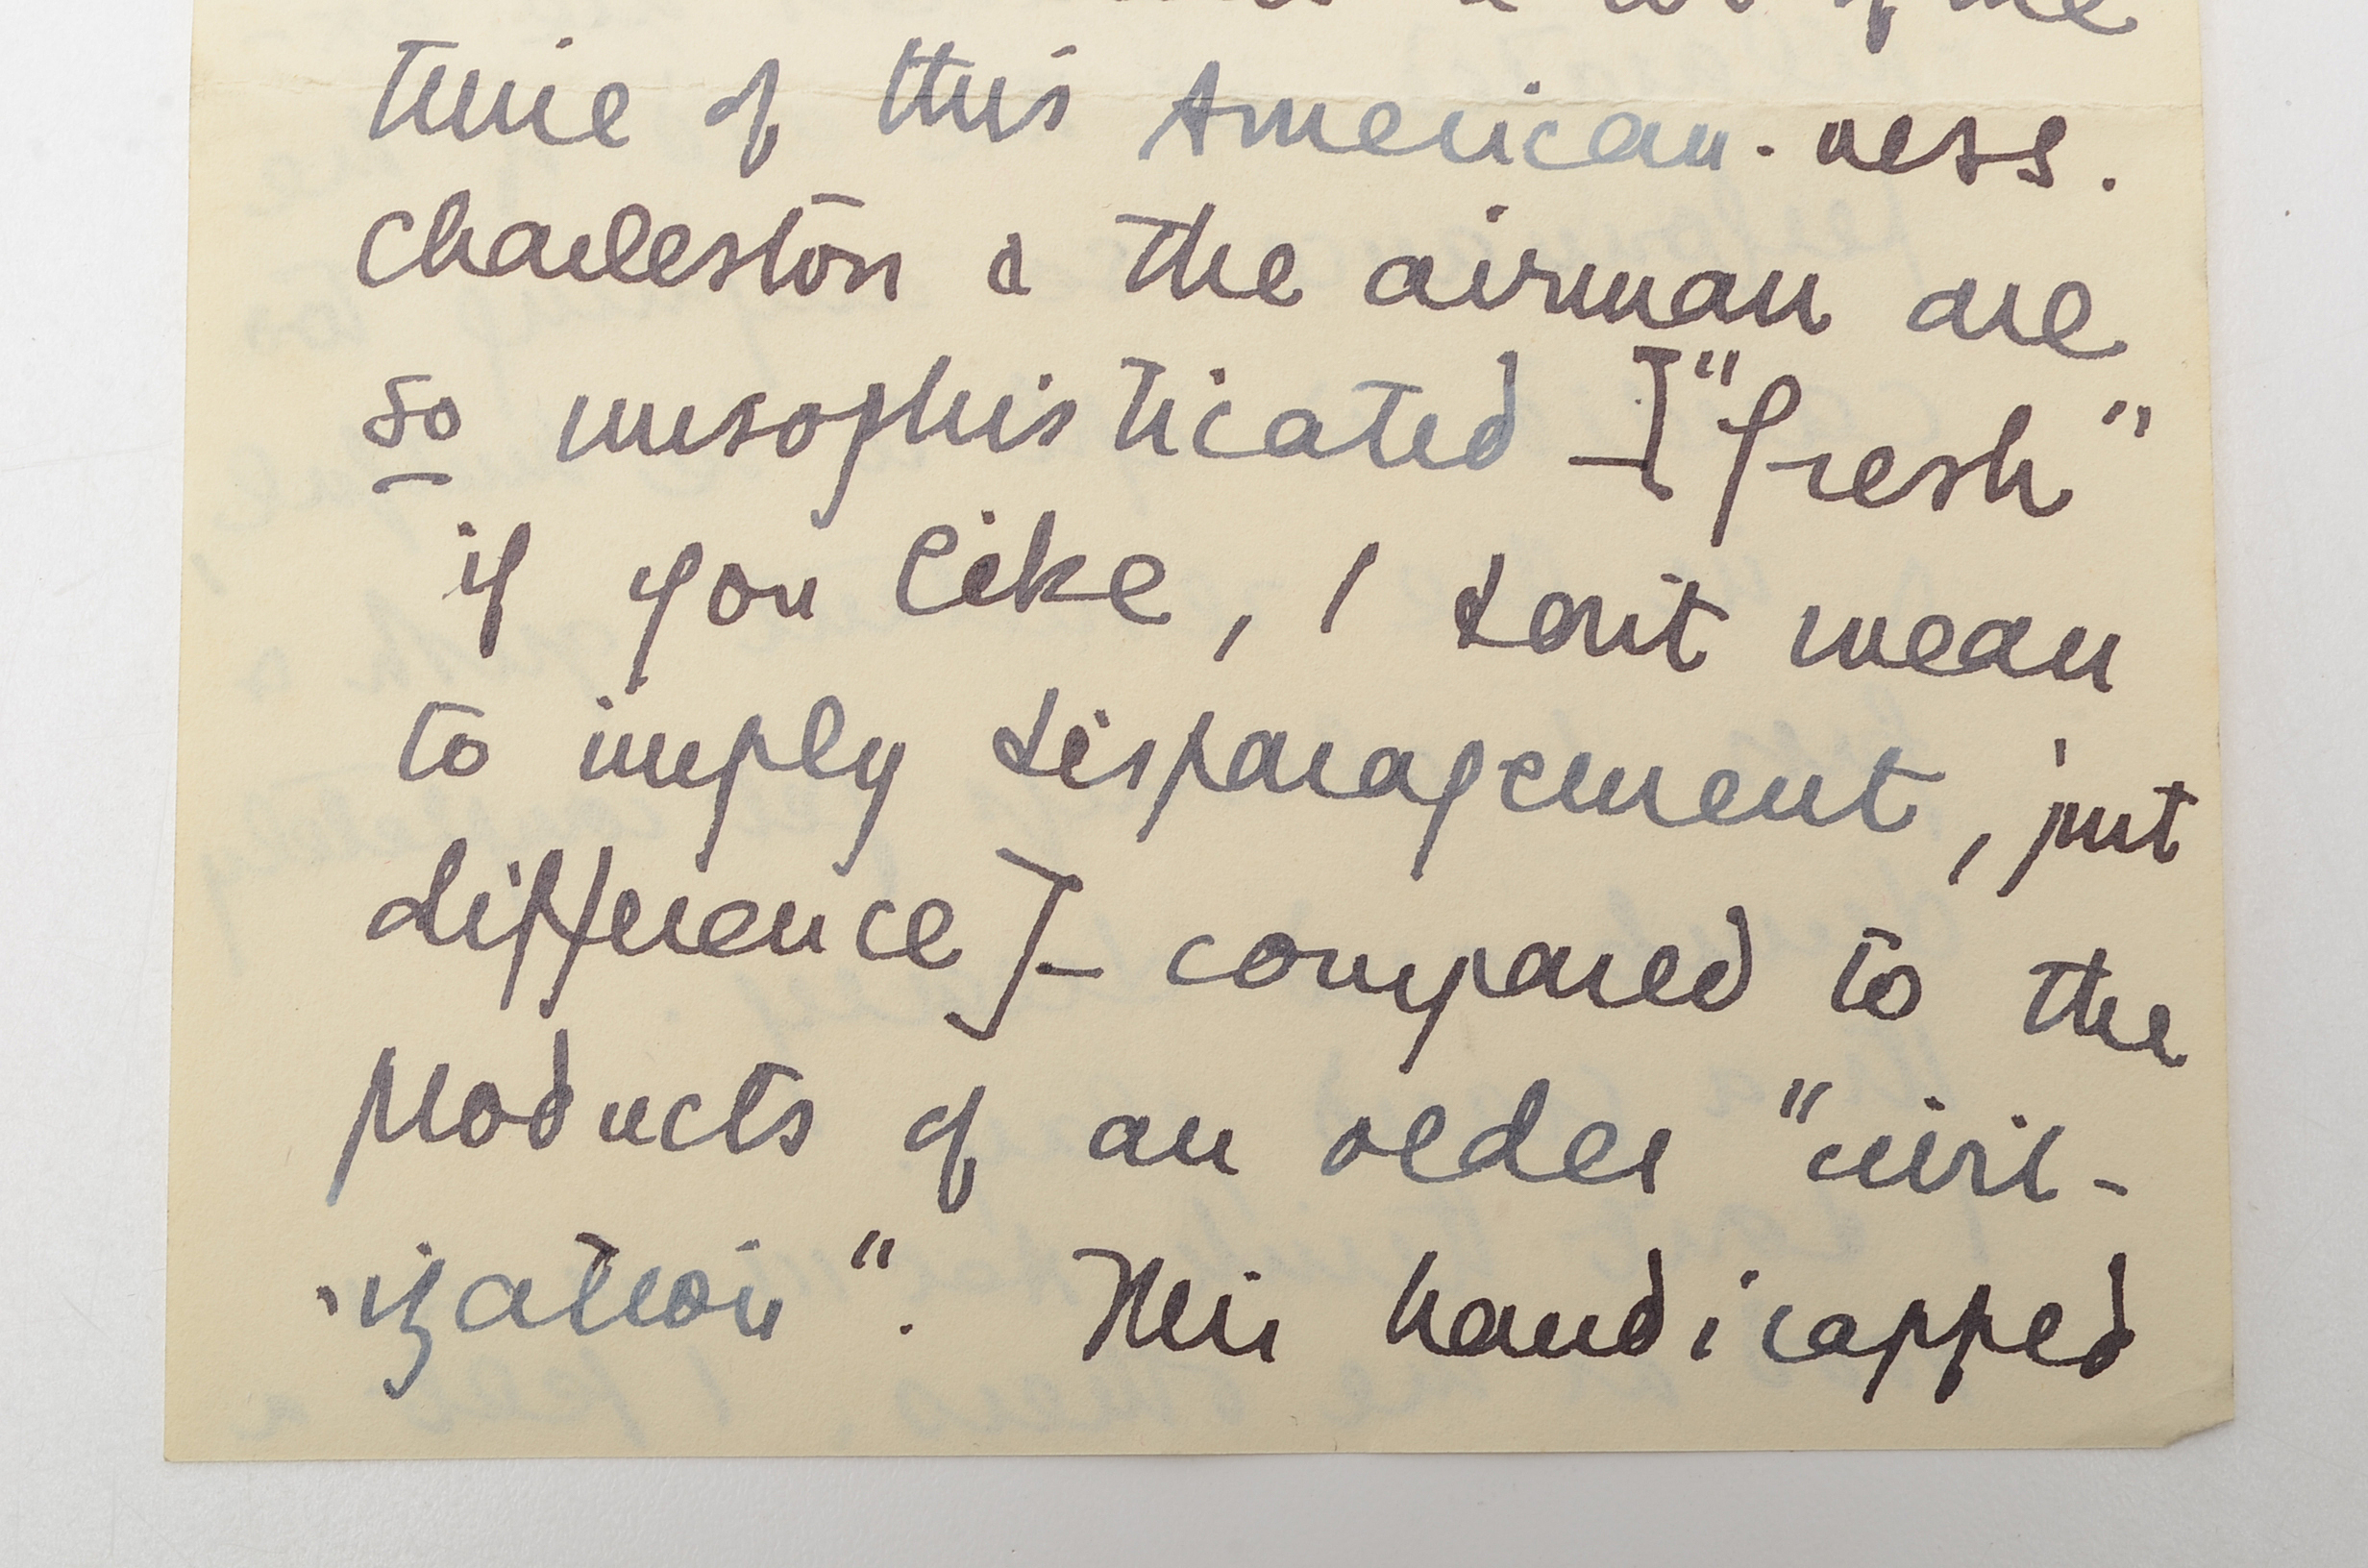 time of this American-ness.
Charleston & the airman are
so unsophisticated — ["fresh"
if you like, I don't mean
to imply disparagement, just
difference] — compared to the
products of an older "civil-
-ization". This handicapped